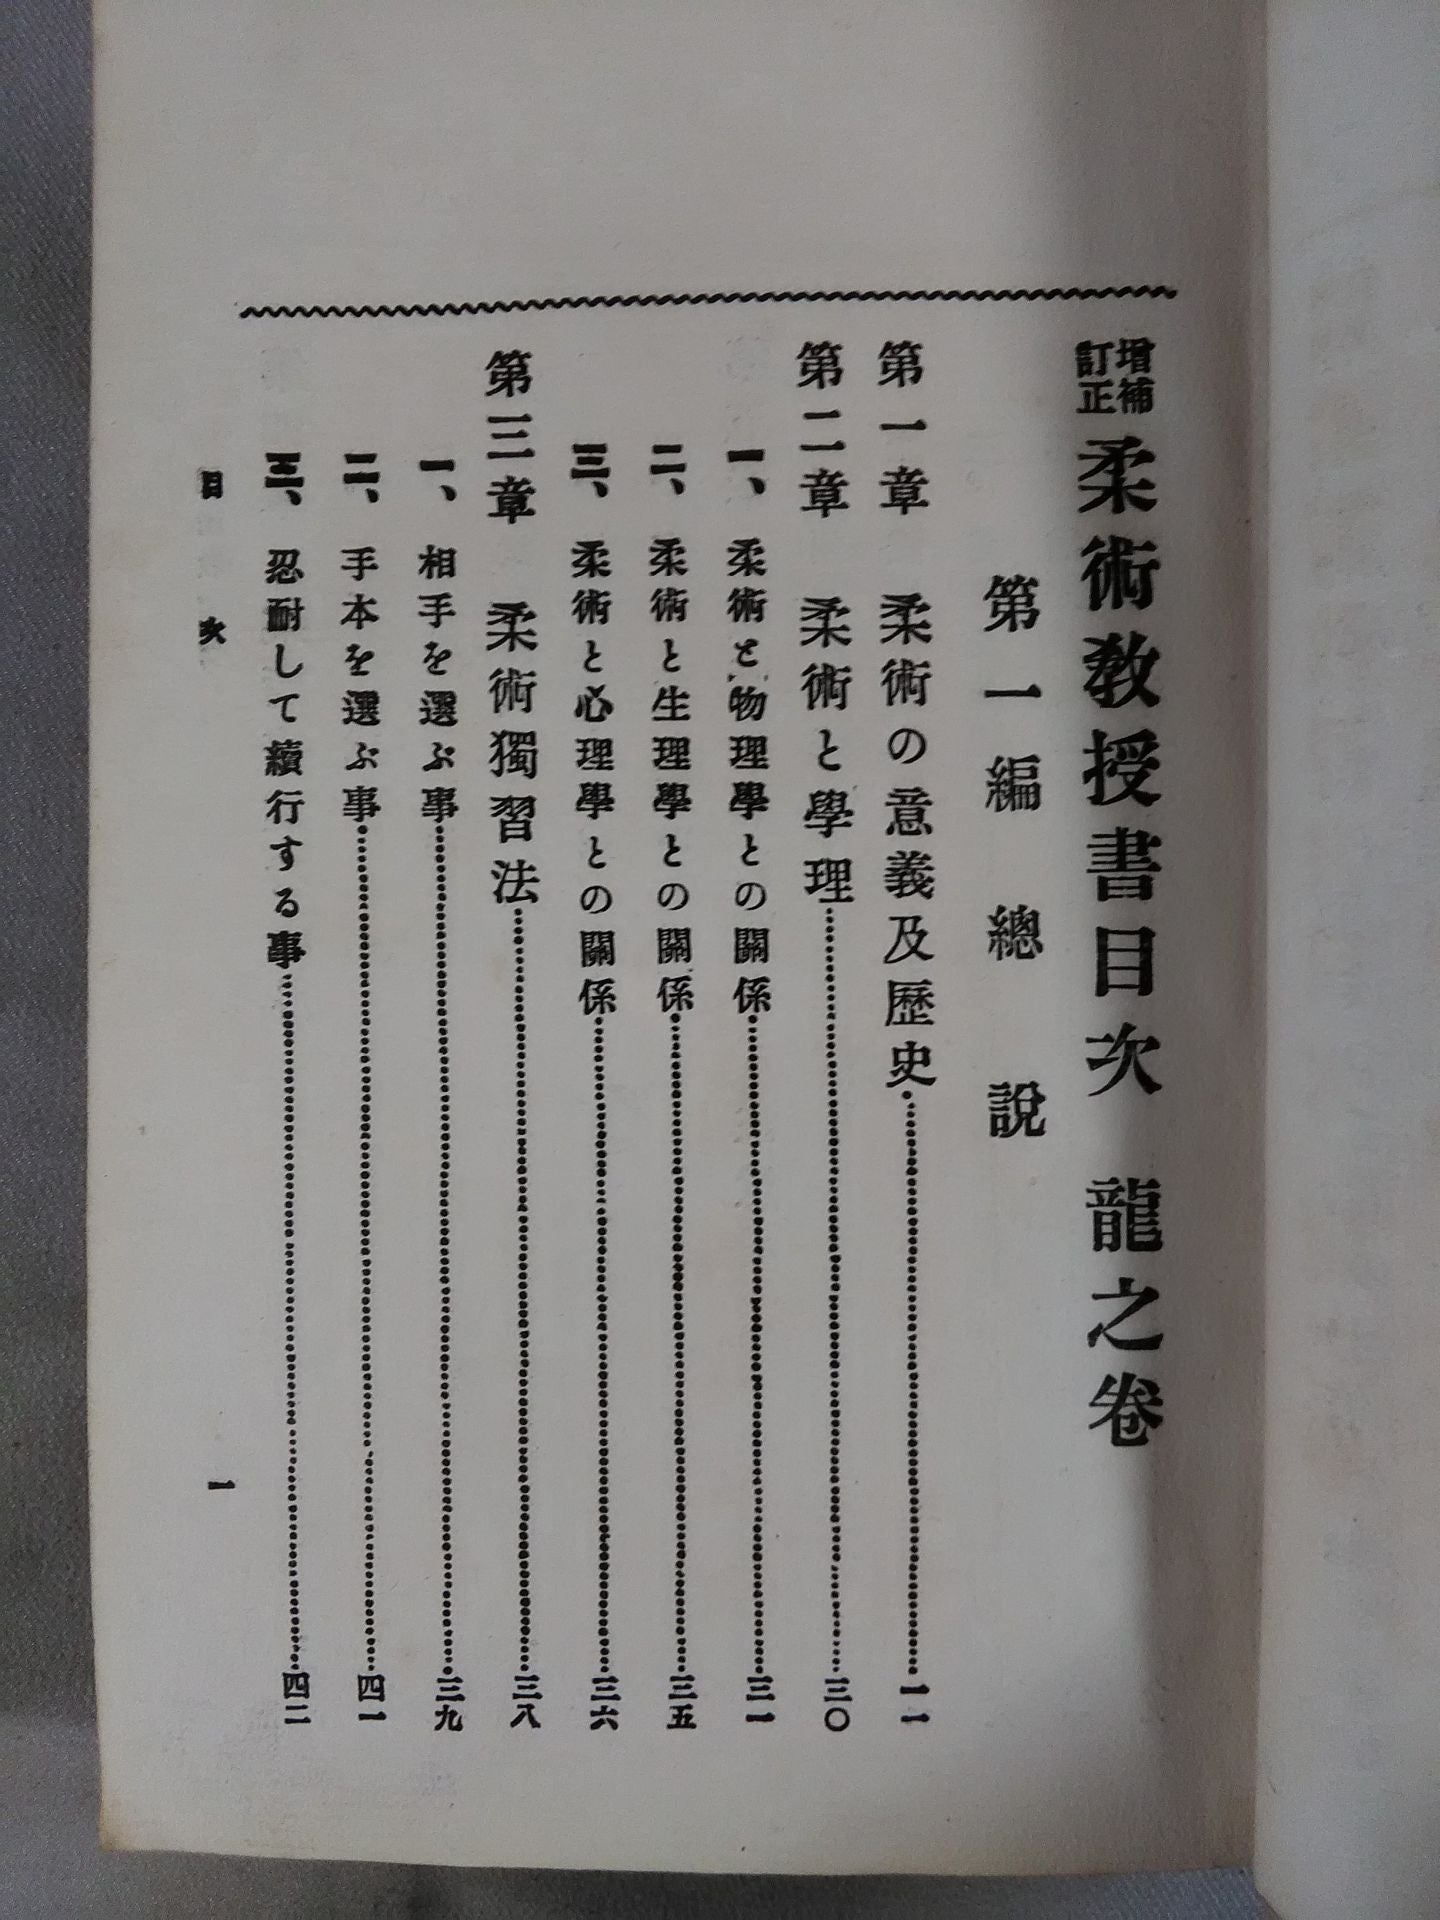 增補訂正 柔術教授書目次 龍之卷
第一編 總說
第一章 柔術の意義及歷史……一一
第二章 柔術と學理……三〇
一、柔術と物理學との關係……三一
二、柔術と生理學との關係……三五
三、柔術と心理學との關係……三六
第三章 柔術獨習法……三八
一、相手を選ぶ事……三九
二、手本を選ぶ事……四一
三、忍耐して續行する事……四二
目次 一